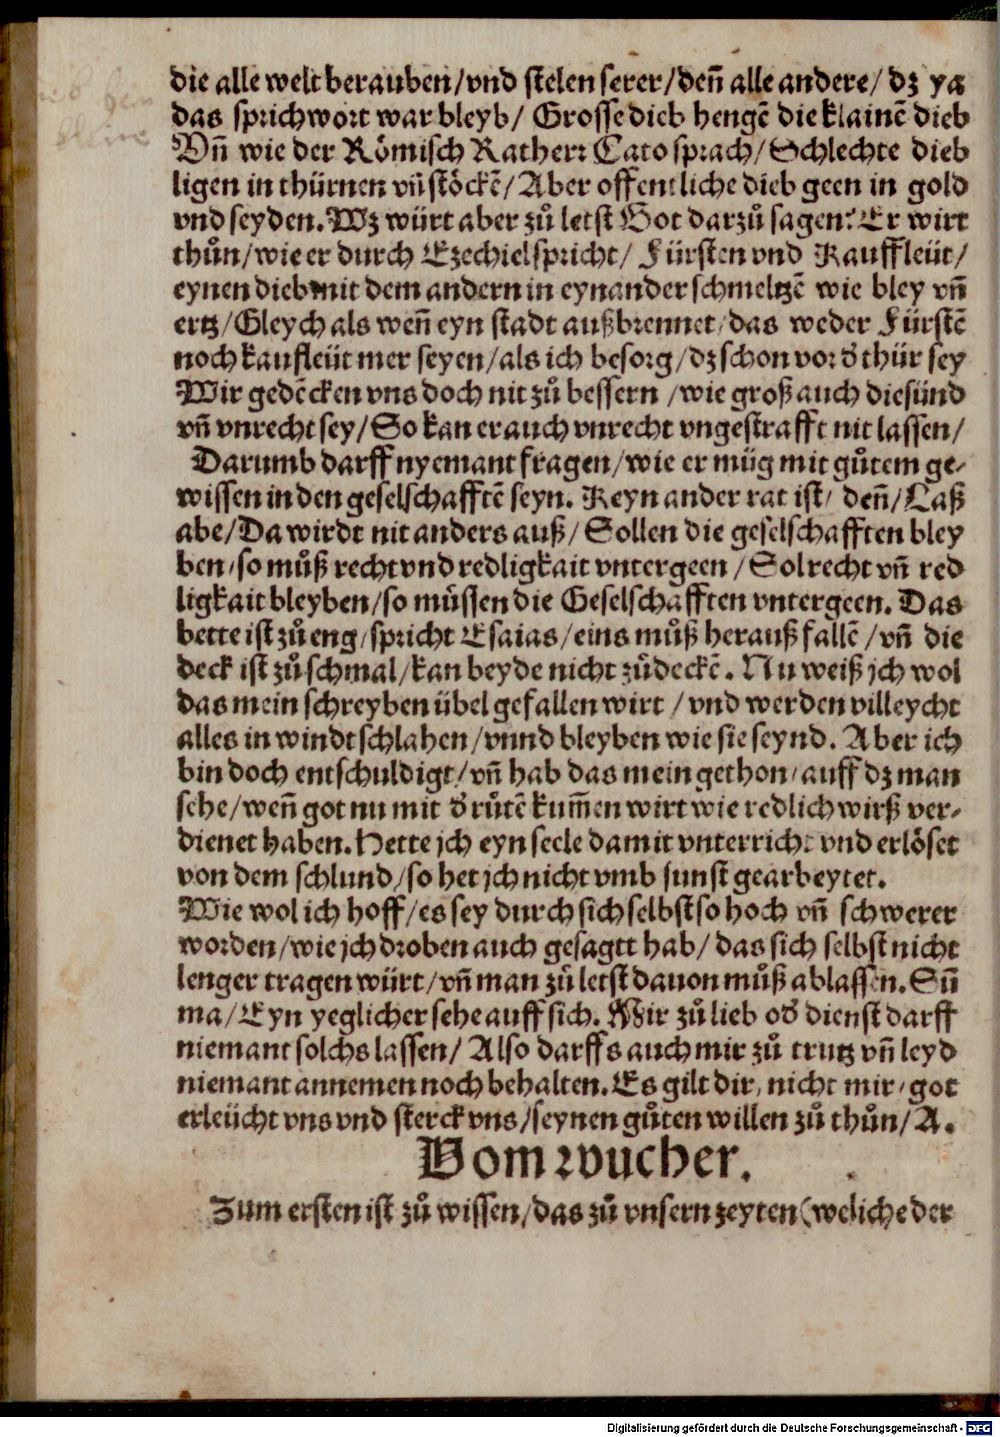 die alle welt berauben/vnd stelen serer/deñ alle andere/ dz ya
das sprichwort war bleyb/ Grosse dieb hengẽ die klainẽ dieb
Vñ wie der Römisch Ratherr Cato sprach/Schlechte dieb
ligen in thürnen vñ stöckẽ/Aber offentliche dieb geen in gold
vnd seyden. Wz würt aber zů letst Got darzů sagen? Er wirt
thůn/wie er durch Ezechiel spricht/ Fürsten vnd Kauffleüt/
eynen dieb mit dem andern in eynander schmeltzẽ wie bley vñ
ertz/Gleych als weñ eyn stadt außbrennet/das weder Fürstẽ
noch kaufleüt mer seyen/als ich besorg/dz schon vor d' thür sey
Wir gedẽcken vns doch nit zů bessern /wie groß auch die sünd
vñ vnrecht sey/So kan er auch vnrecht vngestrafft nit lassen/
Darumb darff nyemant fragen/wie er müg mit gůtem ge-
wissen in den geselschafftẽ seyn. Keyn ander rat ist/ deñ/Laß
abe/Da wirdt nit anders auß/Sollen die geselschafften bley
ben/so můß recht vnd redligkait vntergeen/Sol recht vñ red
ligkait bleyben/so müssen die Geselschafften vntergeen. Das
bette ist zů eng/spricht Esaias/eins můß herauß fallẽ/vñ die
deck ist zů schmal/kan beyde nicht zůdeckẽ. Nu weiß jch wol
das mein schreyben übel gefallen wirt /vnd werden villeycht
alles in windt schlahen/vnnd bleyben wie sie seynd. Aber ich
bin doch entschuldigt/vñ hab das mein gethon/auff dz man
sehe/weñ got nu mit d' růtẽ kum̃en wirt wie redlich wirß ver-
dienet haben. Hette jch eyn seele damit vnterricht vnd erlöset
von dem schlund/so het jch nicht vmb sunst gearbeytet.
Wie wol ich hoff/es sey durch sich selbst so hoch vñ schwerer
worden/wie jch droben auch gesagtt hab/das sich selbst nicht
lenger tragen würt/vñ man zů letst dauon můß ablassen. Sũ
ma/Eyn yeglicher sehe auff sich. Mir zů lieb od' dienst darff
niemant solchs lassen/ Also darffs auch mir zů trutz vñ leyd
niemant annemen noch behalten. Es gilt dir, nicht mir/got
erleücht vns vnd sterck vns/seynen gůten willen zů thůn/A.
Vom wucher.
Zum ersten ist zů wissen/das zů vnsern zeyten (weliche der
Digitalisierung gefördert durch die Deutsche Forschungsgemeinschaft - DFG